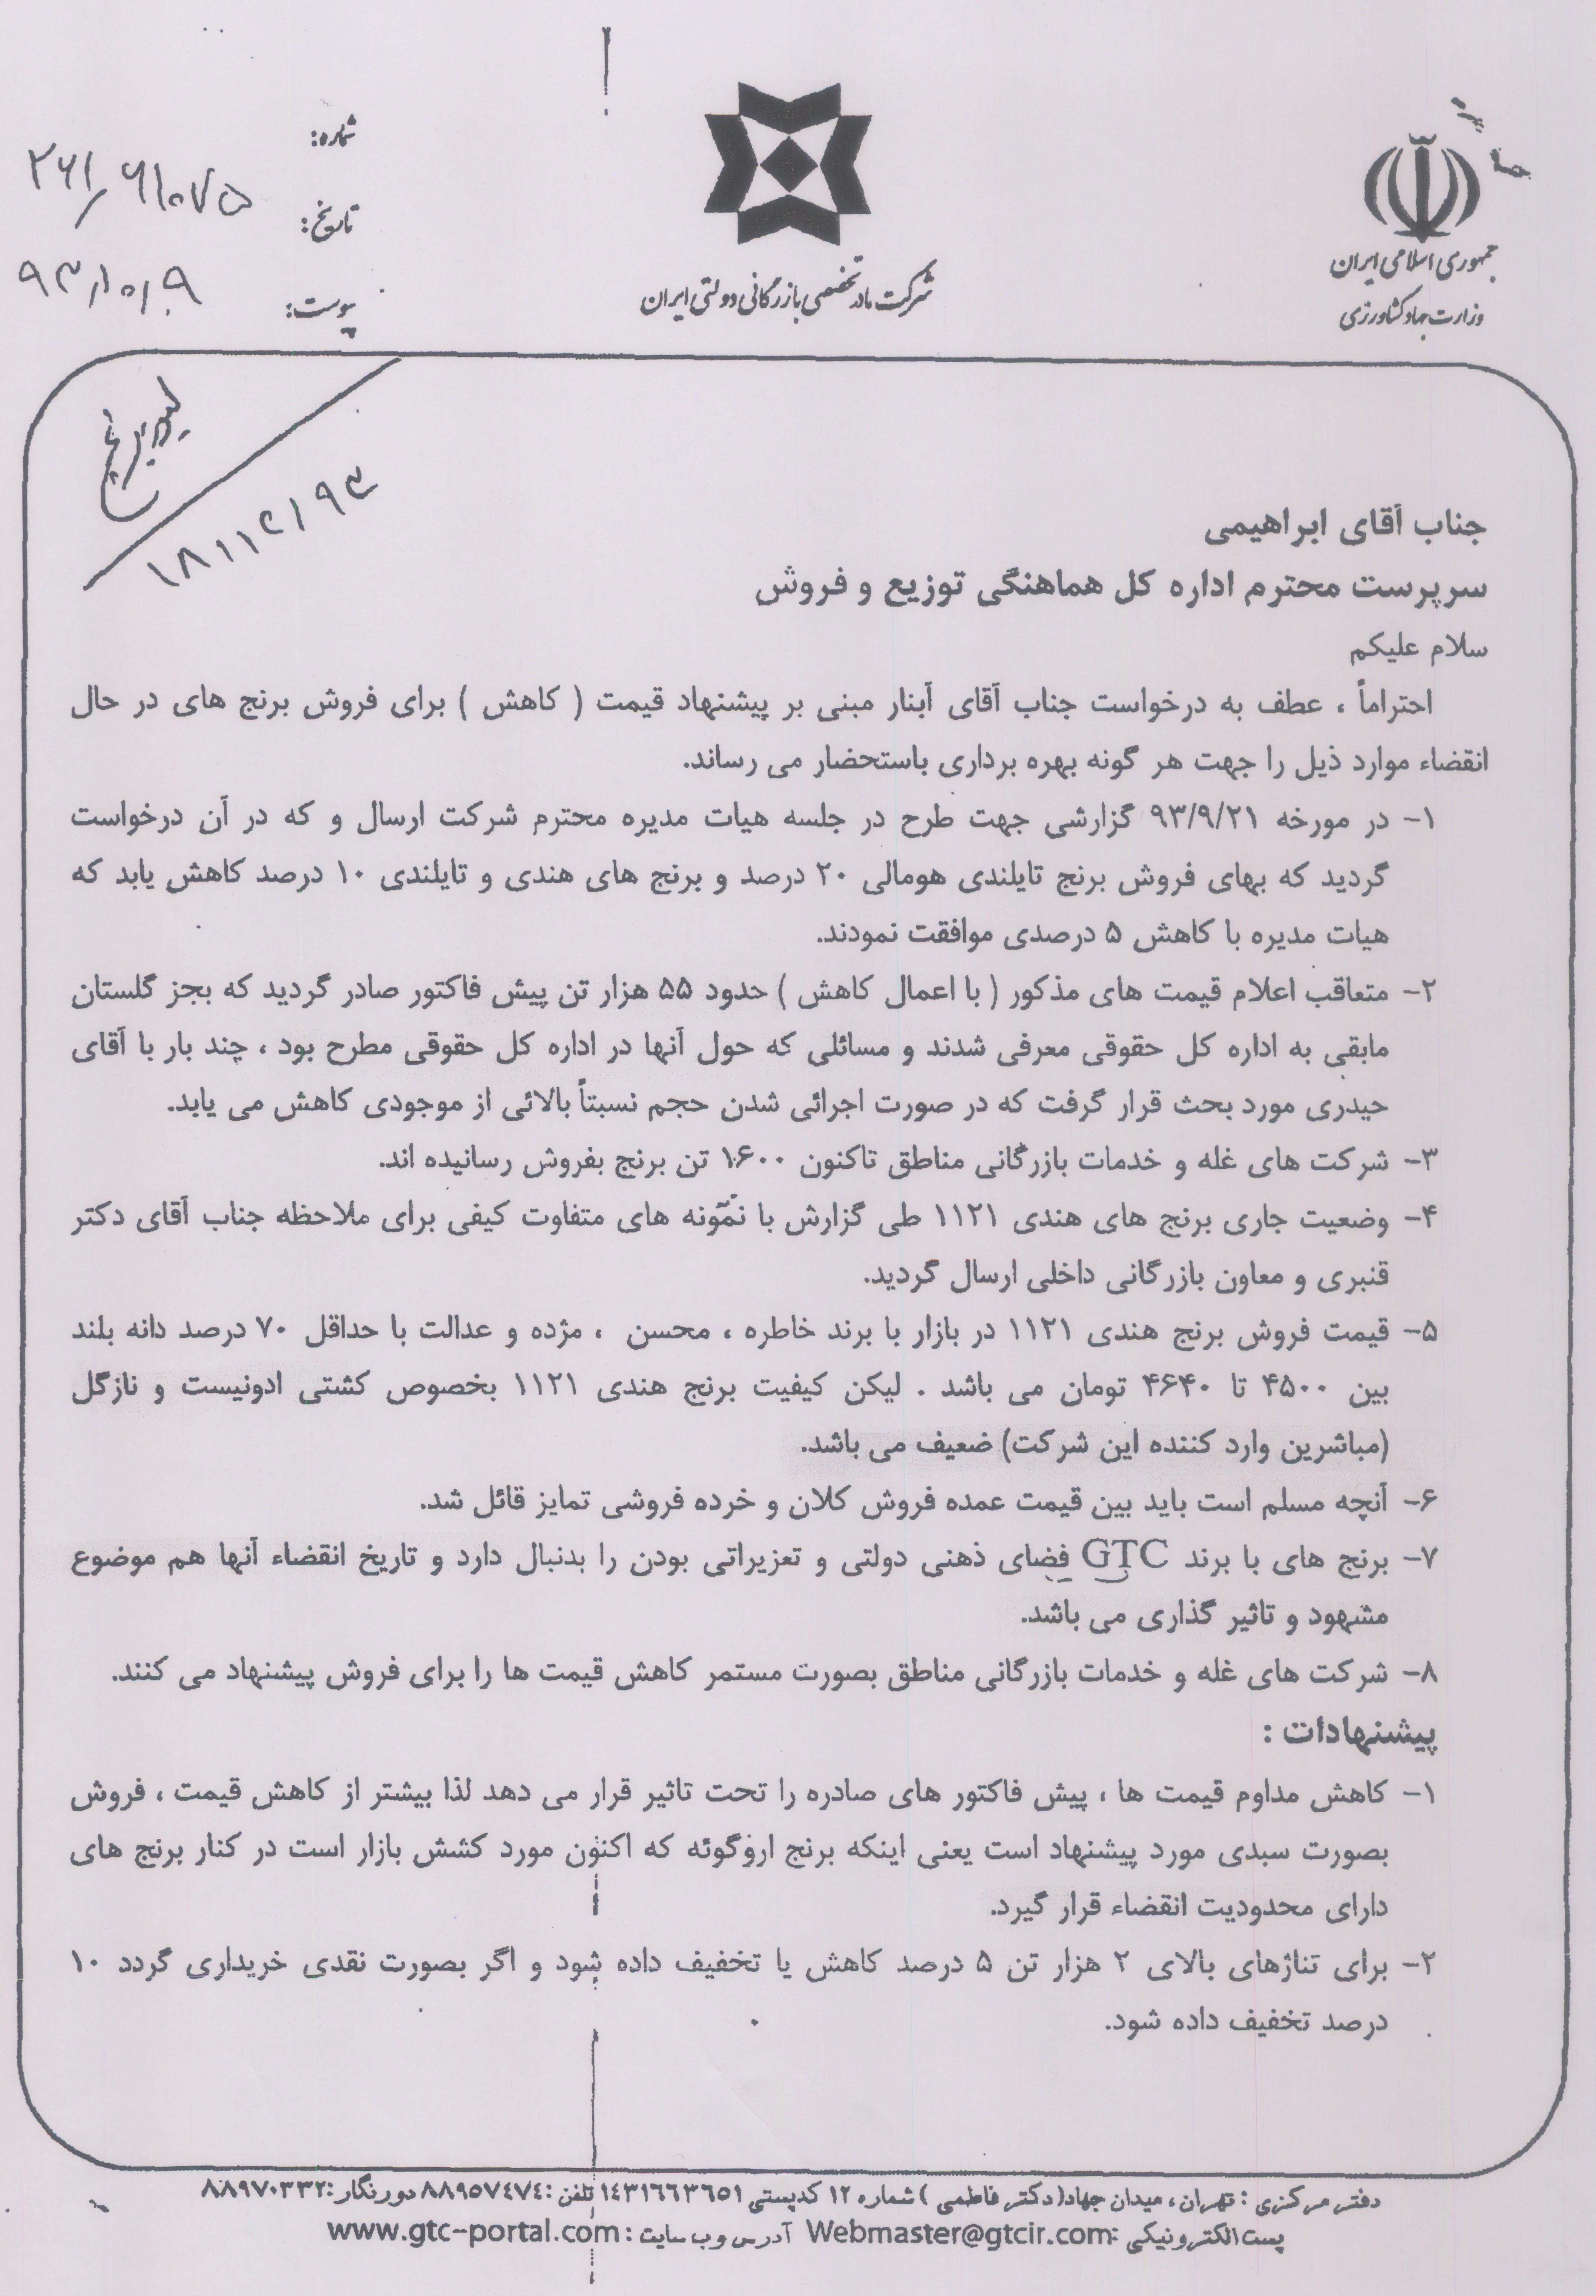 جمهوری اسلامی ایران
وزارت جهاد کشاورزی
شرکت مادر تخصصی بازرگانی دولتی ایران
شماره: ۲۶۱/۶۱۰۷۵
تاریخ: ۹۳/۱۰/۹
پیوست:
۱۸/۱۲/۹۳
جناب آقای ابراهیمی
سرپرست محترم اداره کل هماهنگی توزیع و فروش
سلام علیکم
احتراماً ، عطف به درخواست جناب آقای آبنار مبنی بر پیشنهاد قیمت ( کاهش ) برای فروش برنج های در حال
انقضاء موارد ذیل را جهت هر گونه بهره برداری باستحضار می رساند.
۱- در مورخه ۹۳/۹/۲۱ گزارشی جهت طرح در جلسه هیات مدیره محترم شرکت ارسال و که در آن درخواست
گردید که بهای فروش برنج تایلندی هومالی ۲۰ درصد و برنج های هندی و تایلندی ۱۰ درصد کاهش یابد که
هیات مدیره با کاهش ۵ درصدی موافقت نمودند.
۲- متعاقب اعلام قیمت های مذکور ( با اعمال کاهش ) حدود ۵۵ هزار تن پیش فاکتور صادر گردید که بجز گلستان
مابقی به اداره کل حقوقی معرفی شدند و مسائلی که حول آنها در اداره کل حقوقی مطرح بود ، چند بار با آقای
حیدری مورد بحث قرار گرفت که در صورت اجرائی شدن حجم نسبتاً بالائی از موجودی کاهش می یابد.
۳- شرکت های غله و خدمات بازرگانی مناطق تاکنون ۱۶۰۰ تن برنج بفروش رسانیده اند.
۴- وضعیت جاری برنج های هندی ۱۱۲۱ طی گزارش با نمونه های متفاوت کیفی برای ملاحظه جناب آقای دکتر
قنبری و معاون بازرگانی داخلی ارسال گردید.
۵- قیمت فروش برنج هندی ۱۱۲۱ در بازار با برند خاطره ، محسن ، مژده و عدالت با حداقل ۷۰ درصد دانه بلند
بین ۴۵۰۰ تا ۴۶۴۰ تومان می باشد . لیکن کیفیت برنج هندی ۱۱۲۱ بخصوص کشتی ادونیست و نازگل
(مباشرین وارد کننده این شرکت) ضعیف می باشد.
۶- آنچه مسلم است باید بین قیمت عمده فروش کلان و خرده فروشی تمایز قائل شد.
۷- برنج های با برند GTC فضای ذهنی دولتی و تعزیراتی بودن را بدنبال دارد و تاریخ انقضاء آنها هم موضوع
مشهود و تاثیر گذاری می باشد.
۸- شرکت های غله و خدمات بازرگانی مناطق بصورت مستمر کاهش قیمت ها را برای فروش پیشنهاد می کنند.
پیشنهادات :
۱- کاهش مداوم قیمت ها ، پیش فاکتور های صادره را تحت تاثیر قرار می دهد لذا بیشتر از کاهش قیمت ، فروش
بصورت سبدی مورد پیشنهاد است یعنی اینکه برنج اروگوئه که اکنون مورد کشش بازار است در کنار برنج های
دارای محدودیت انقضاء قرار گیرد.
۲- برای تناژهای بالای ۲ هزار تن ۵ درصد کاهش یا تخفیف داده شود و اگر بصورت نقدی خریداری گردد ۱۰
درصد تخفیف داده شود.
دفتر مرکزی : تهران ، میدان جهاد( دکتر فاطمی ) شماره ۱۲ کدپستی ۱۴۳۱۶۶۳۶۵۱ تلفن : ۸۸۹۵۷۴۷۴ دورنگار : ۸۸۹۷۰۳۳۲
پست الکترونیکی : Webmaster@gtcir.com آدرس وب سایت : www.gtc-portal.com